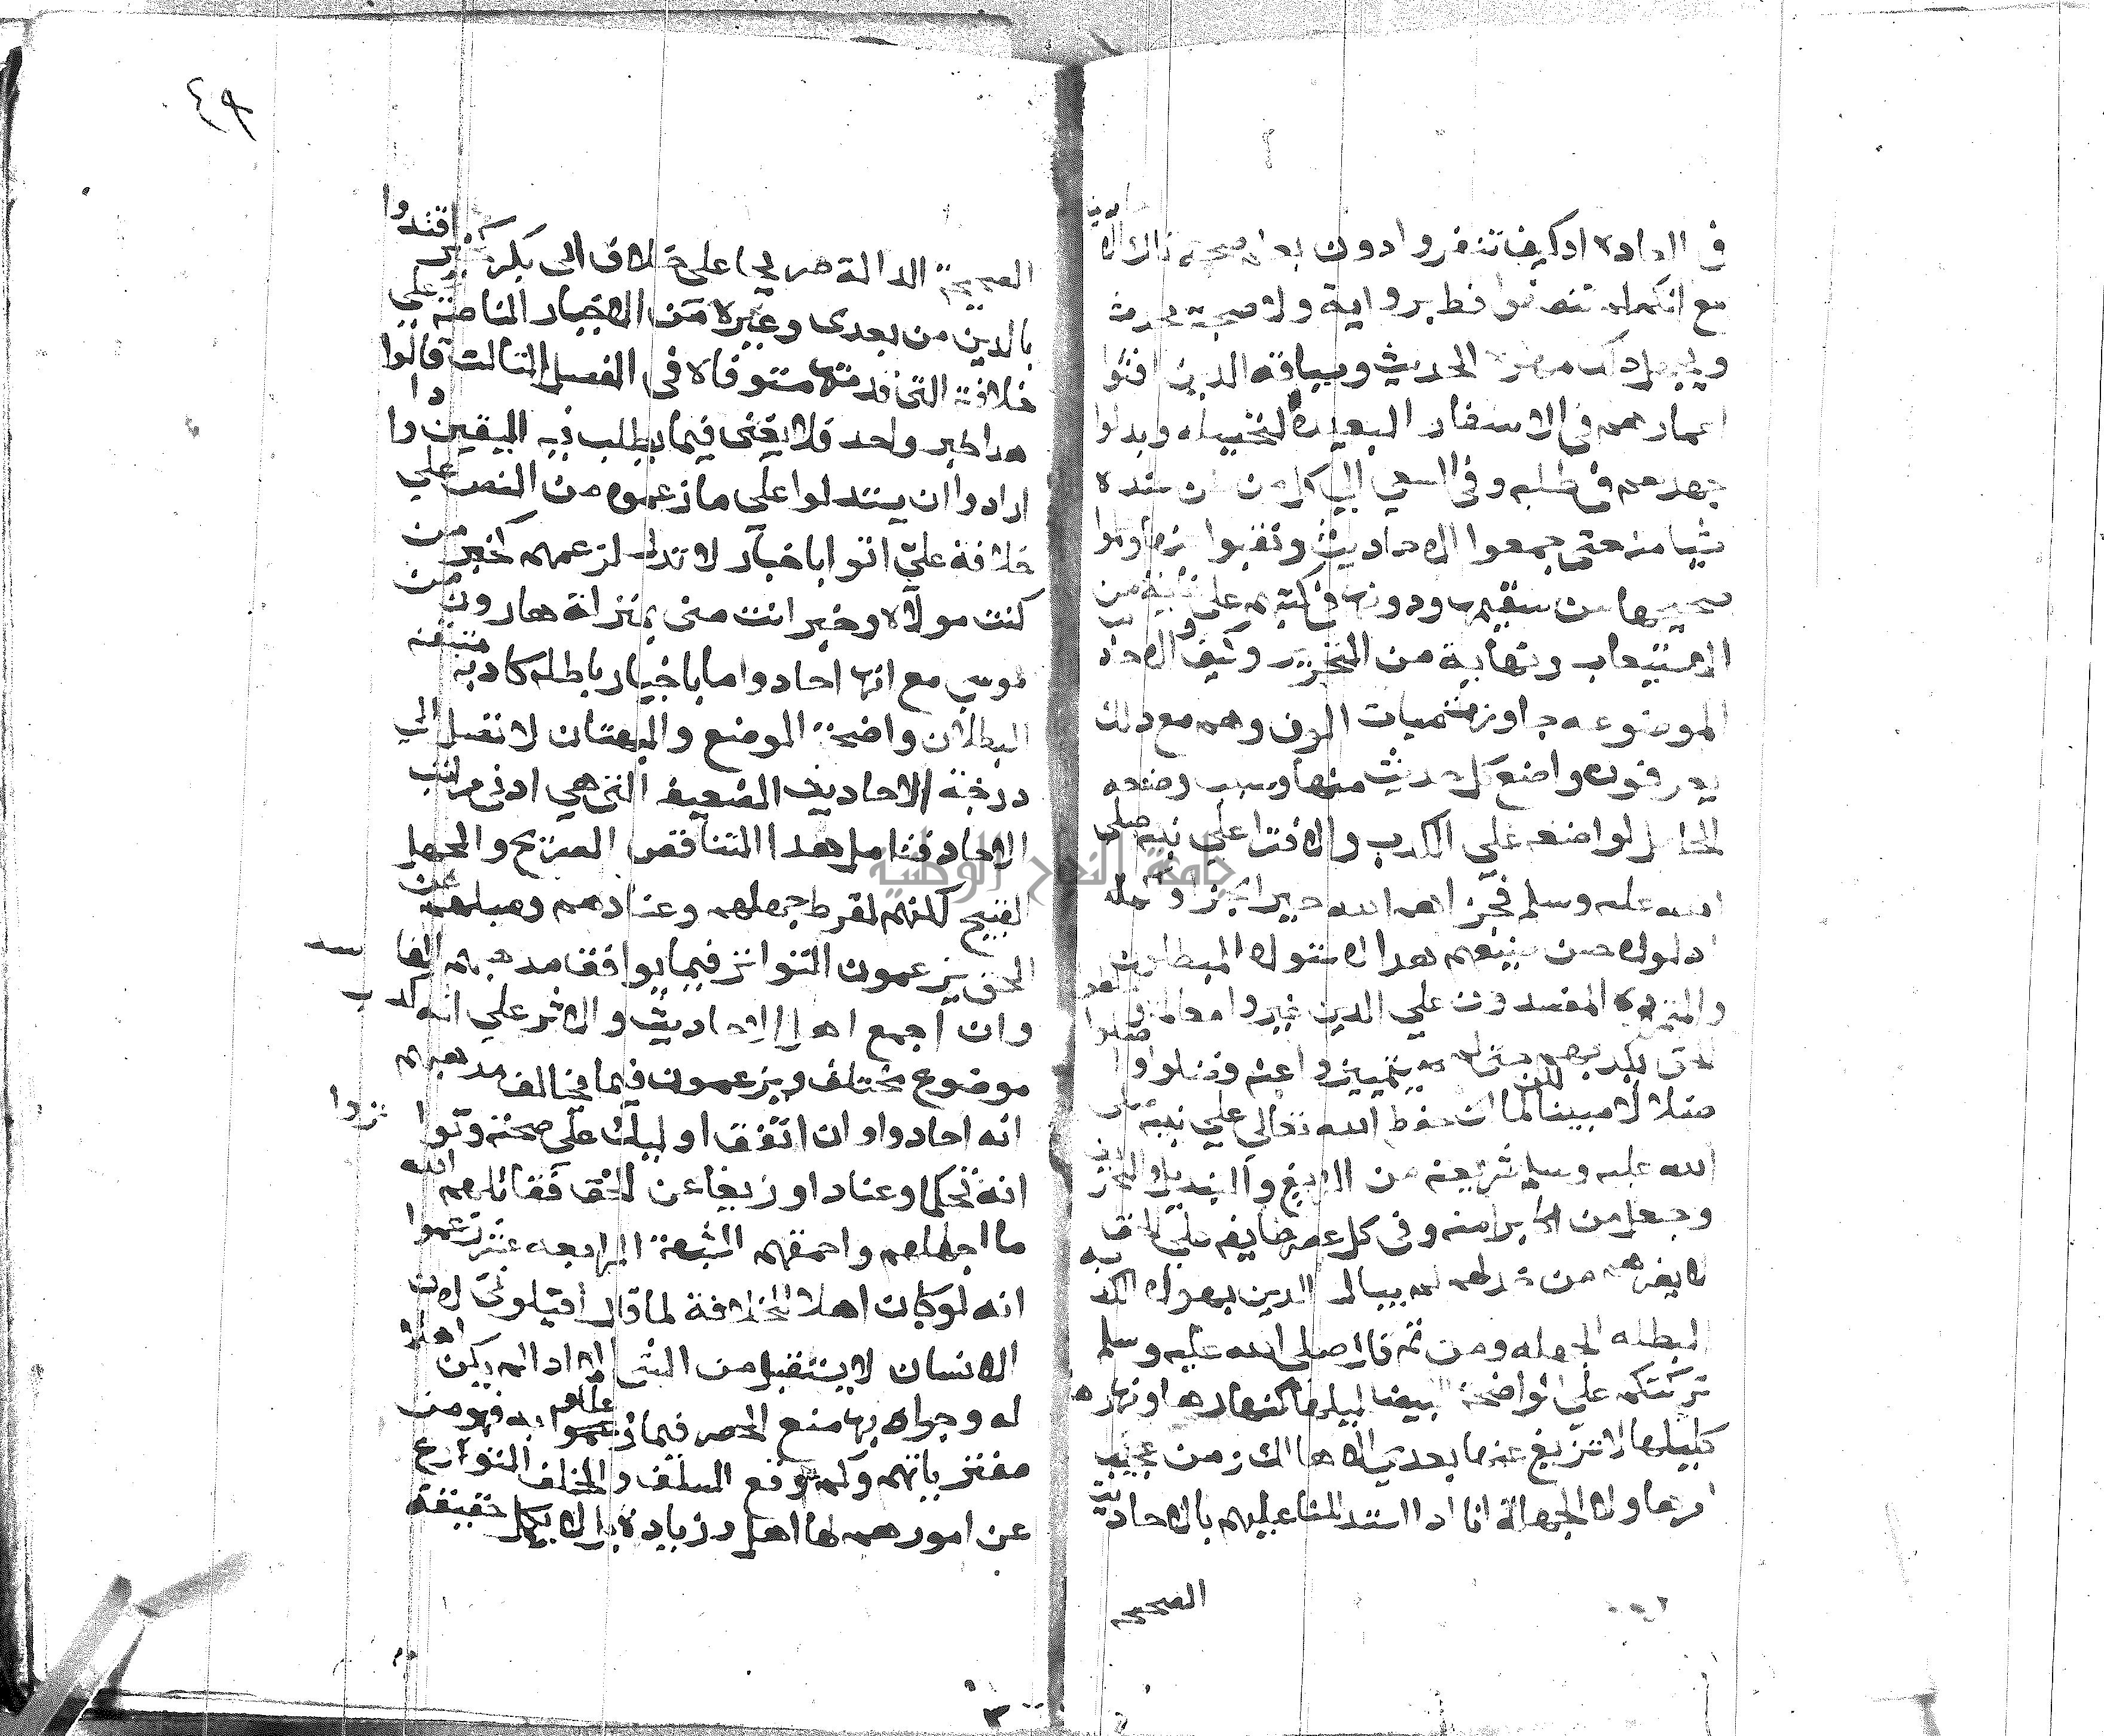 في العادة اذ كيف تنفردوا دون بعلم صحة تلك الاحاديث
مع انكم لم تتصفوا قط برواية ولا صحبة محدث
ويجهل ذلك مهرة الحديث وسباقه الدين افنوا
اعمارهم في الاسفار البعيدة لتحصيله وبدلوا
جهدهم في طلبه وفي السعي الي كل من عنده
شيا منه حتى جمعوا الاحاديث ونقبوا عنها وعلموا
صحيحها من سقيمها ودونها في كتبهم على غاية من
الاستيعاب ونهاية من التحرير وكيف والاحاد
الموضوعه جاوزت مئيات الالوف وهم مع ذلك
يعرفون واضع كل حديث منها وسبب وضعه
الحامل لواضعه علي الكدب والافترا علي نبيه صلى
الله عليه وسلم فجزاهم الله خيرا لجزا واكمله
اذ لولا حسن صنيعهم هدا لاستولا المبطلون
والمتمردة المفسدون علي الدين غيروا معالمه
الحق بكدبهم حتى لم يتميز واعنه وضلوا واضلوا
ضلالا مبينا لما ان حفظ الله تعالى علي نبيه صلى
الله عليه وسلم شريعته من الزيغ والتبديل والتحريف
وجعل من اكابر امته وفي كل عصر طايفه علي الحق
لا يضرهم من خدلهم لم يبال الدين بهولا الكدبه
المبطله الجهله ومن ثم قال صلى الله عليه وسلم
تركتكم علي الواضحة البيضا ليلها كنهارها ونهارها
كليلها لا تزيغ عنها بعدي الا هالك ومن عجيب
امر هاولا الجهلة انا ادا استدللنا عليهم بالاحاديث
الصحيحه
٤٩
الصحيحة الدالة صريحا على خلافة ابي بكر كخبر اقتدوا
بالدين من بعدى وغيره من الاخبار الناصة علي
خلافته التي قدمتها مستوفاه في الفصل الثالث قالوا
هدا خبر واحد فلا يغني فيما يطلب فيه اليقين وادا
ارادوا ان يستدلوا على ما زعموه من النص علي
خلافة علي اتوا باخبار لا تدل لزعمهم كخبر من
كنت مولاه وخبر انت مني بمنزلة هارون من
موسي مع انها احاد واما باخبار باطله كادبه متيقنه
البطلان واضحة الوضع والبهتان لا تصل الي
درجة الاحاديث الضعيفه التى هي ادنى مراتب
الاحاد فتامل هدا التناقض الصريح والجهل
القبيح لكنهم لفرط جهلهم وعنادهم وميلهم عن
الحق يزعمون التواتر فيما يوافق مدهبهم الفاسد
وان اجمع اهل الاحاديث والاثر علي انه كدب
موضوع مختلف ويزعمون فيما يخالف مدهبهم
انه احاد وان اتفق اوليك على صحته وتواتروا
انه تحكما وعنادا وزيغا عن الحق فقاتلهم الله
ما اجهلهم واحمقهم الشبهة الرابعه عشر زعموا
انه لو كان اهلا للخلافة لما قال اقيلوني لان
الانسان لا يستقيل من الشي الا ادا لم يكن اهلا
له وجوابه بها منع الحصر فيما عللوا به فهو من
مفترياتهم وكم وقع السلف والخلف التورع
عن امور هم لها اهل وزيادة بل لا يكمل حقيقة
جامعة النجاح الوطنية